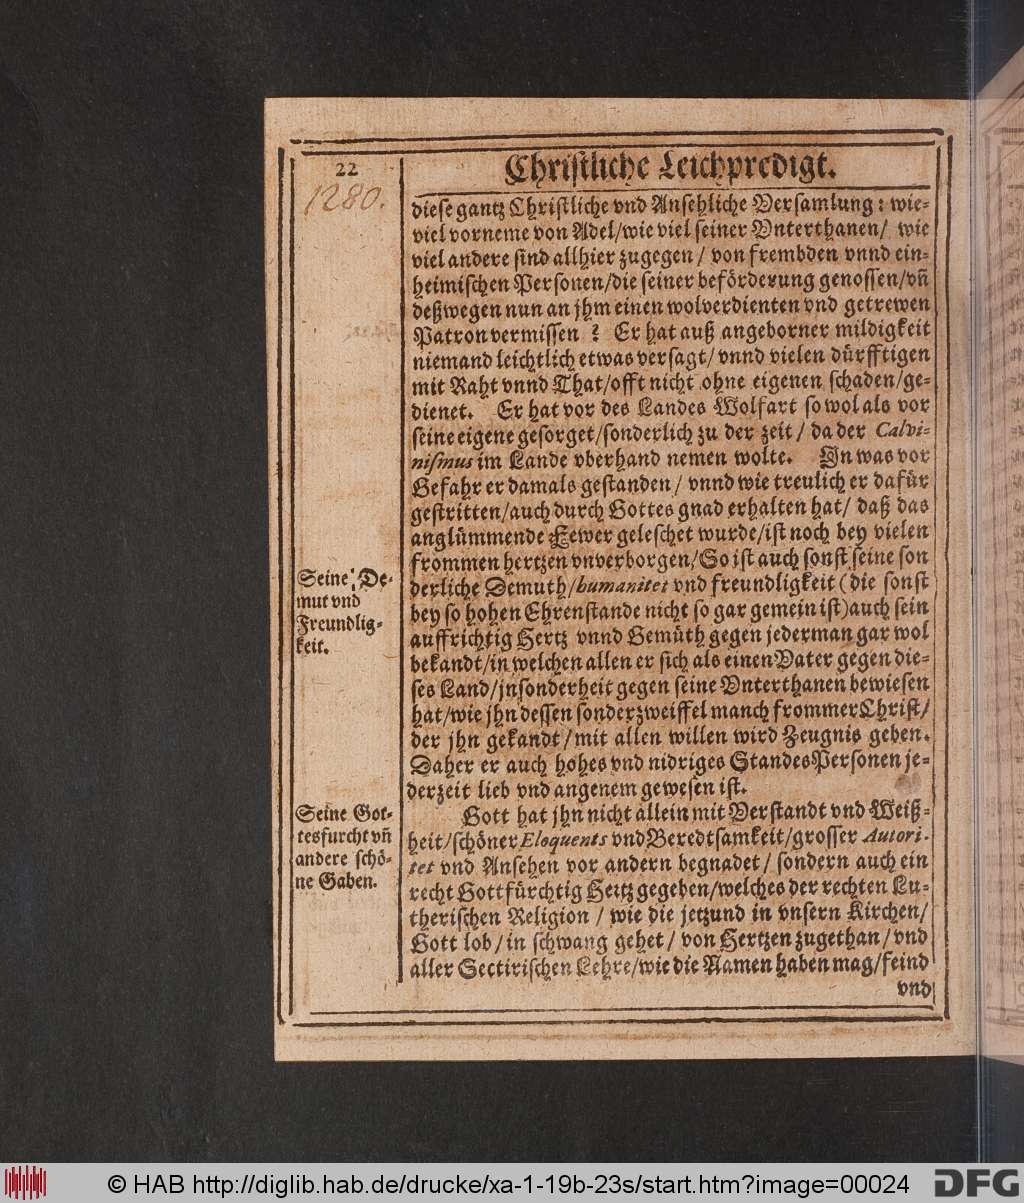 22
Christliche Leichpredigt.
1280.
diese gantz Christliche vnd Ansehliche Versamlung: wie-
viel vorneme von Adel/wie viel seiner Vnterthanen/ wie
viel andere sind allhier zugegen/ von frembden vnnd ein-
heimischen Personen/die seiner beförderung genossen/vñ
deßwegen nun an jhm einen wolverdienten vnd getrewen
Patron vermissen ? Er hat auß angeborner mildigkeit
niemand leichtlich etwas versagt/ vnnd vielen dürfftigen
mit Raht vnnd That/offt nicht ohne eigenen schaden/ge-
dienet. Er hat vor des Landes Wolfart so wol als vor
seine eigene gesorget/sonderlich zu der zeit/ da der Calvi-
nismus im Lande vberhand nemen wolte. In was vor
Gefahr er damals gestanden/ vnnd wie treulich er dafür
gestritten/auch durch Gottes gnad erhalten hat/ daß das
anglümmende Fewer geleschet wurde/ist noch bey vielen
frommen hertzen vnverborgen/So ist auch sonst seine son
derliche Demuth/humanitet vnd freundligkeit (die sonst
bey so hohen Ehrenstande nicht so gar gemein ist)auch sein
auffrichtig Hertz vnnd Gemüth gegen jederman gar wol
bekandt/in welchen allen er sich als einen Vater gegen die-
ses Land/jnsonderheit gegen seine Vnterthanen bewiesen
hat/wie jhn dessen sonder zweiffel manch frommer Christ/
der jhn gekandt/mit allen willen wird Zeugnis geben.
Daher er auch hohes vnd nidriges StandesPersonen je-
derzeit lieb vnd angenem gewesen ist.
Seine De-
mut vnd
Freundlig-
keit.
Gott hat jhn nicht allein mit Verstandt vnd Weiß-
heit/schöner Eloquents vnd Beredtsamkeit/grosser Autori-
tet vnd Ansehen vor andern begnadet/ sondern auch ein
recht Gottfürchtig Hertz gegeben/welches der rechten Lu-
therischen Religion / wie die jetzund in vnsern Kirchen/
Gott lob/in schwang gehet/ von Hertzen zugethan/vnd
aller Sectirischen Lehre/wie die Namen haben mag/feind
vnd
Seine Got-
tesfurcht vñ
andere schö-
ne Gaben.
© HAB http://diglib.hab.de/drucke/xa-1-19b-23s/start.htm?image=00024
DFG